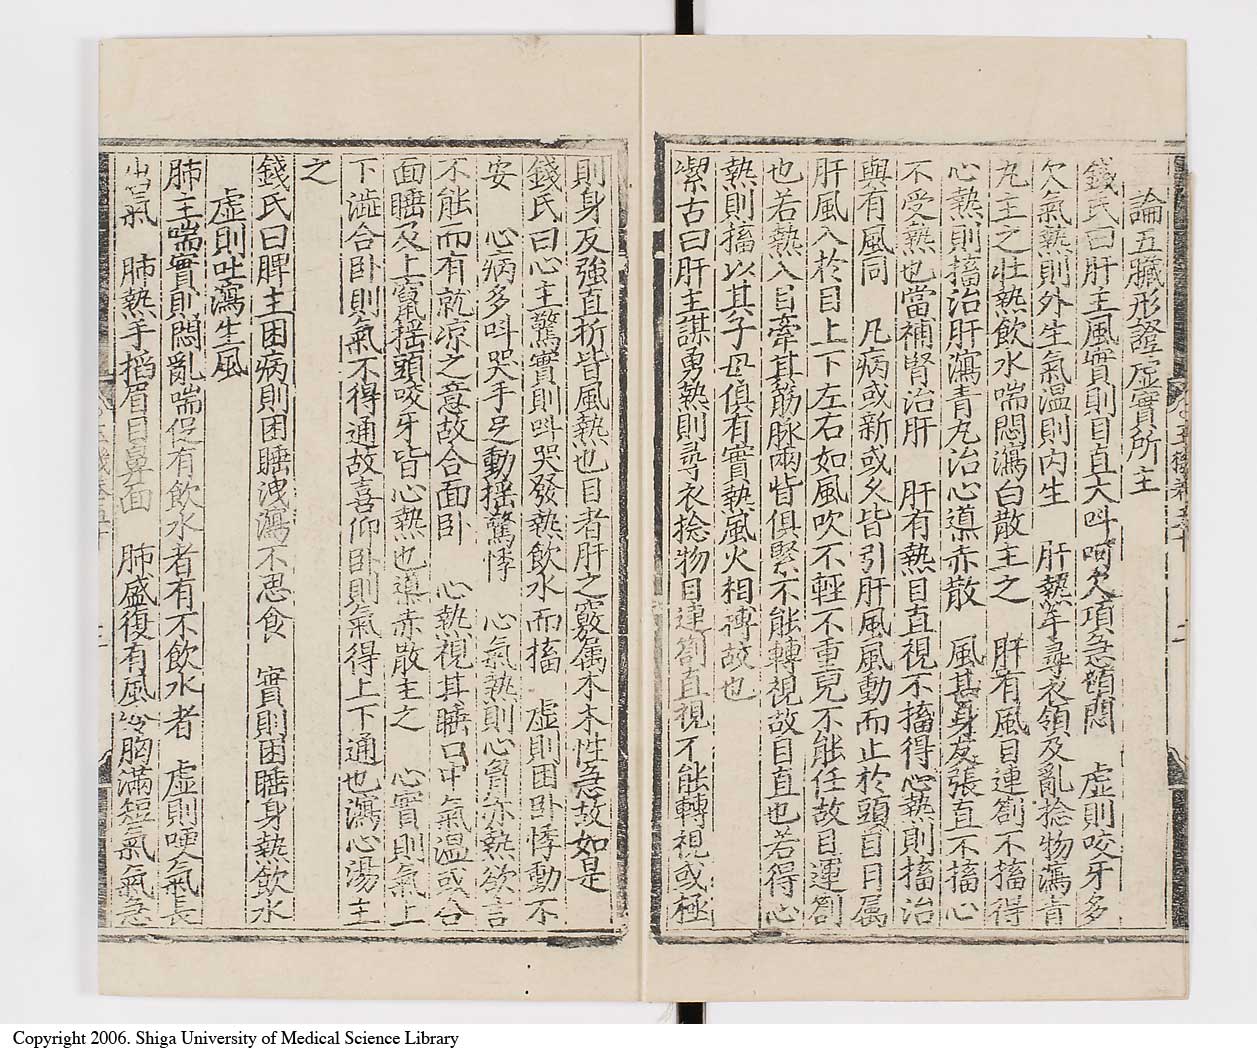 論五臟形證虛實所主
錢氏曰肝主風實則目直大叫呵欠項急頓悶　虛則咬牙多
欠氣熱則外生氣溫則內生　肝熱牟尋衣領及亂捻物瀉青
丸主之壮熱飲水喘悶瀉白散主之　肝有風目連劄不搐得
心熱則搐治肝瀉青丸治心導赤散　風甚身反張直不搐心
不受熱也當補腎治肝　肝有熱目直視不搐得心熱則搐治
與有風同　凡病或新或久皆引肝風風動而止於頭目目属
肝風入於目上下左右如風吹不輕不重兒不能任故目連劄
也若熱入目牽其筋脉兩眥俱緊不能轉視故目直也若得心
熱則搐以其子母俱有實熱風火相摶故也
潔古曰肝主謀勇熱則尋衣捻物目連劄直視不能轉視或極
則身反強直折皆風熱也目者肝之竅属木木性急故如是
錢氏曰心主驚實則叫哭發熱飲水而搐　虛則困卧悸動不
安　心病多叫哭手足動摇驚悸　心氣熱則心胷亦熱欲言
不能而有就凉之意故合面卧　心熱視其睡口中氣溫或合
面睡及上竄摇頭咬牙皆心熱也導赤散主之　心實則氣上
下澁合卧則氣不得通故喜仰卧則氣得上下通也瀉心湯主
之
錢氏曰脾主困病則困睡洩瀉不思食　實則困睡身熱飲水
虛則吐瀉生風
肺主喘實則悶亂喘促有飲水者有不飲水者　虛則哽氣長
出氣　肺熱手掐眉目鼻面　肺盛復有風冷胸滿短氣氣急